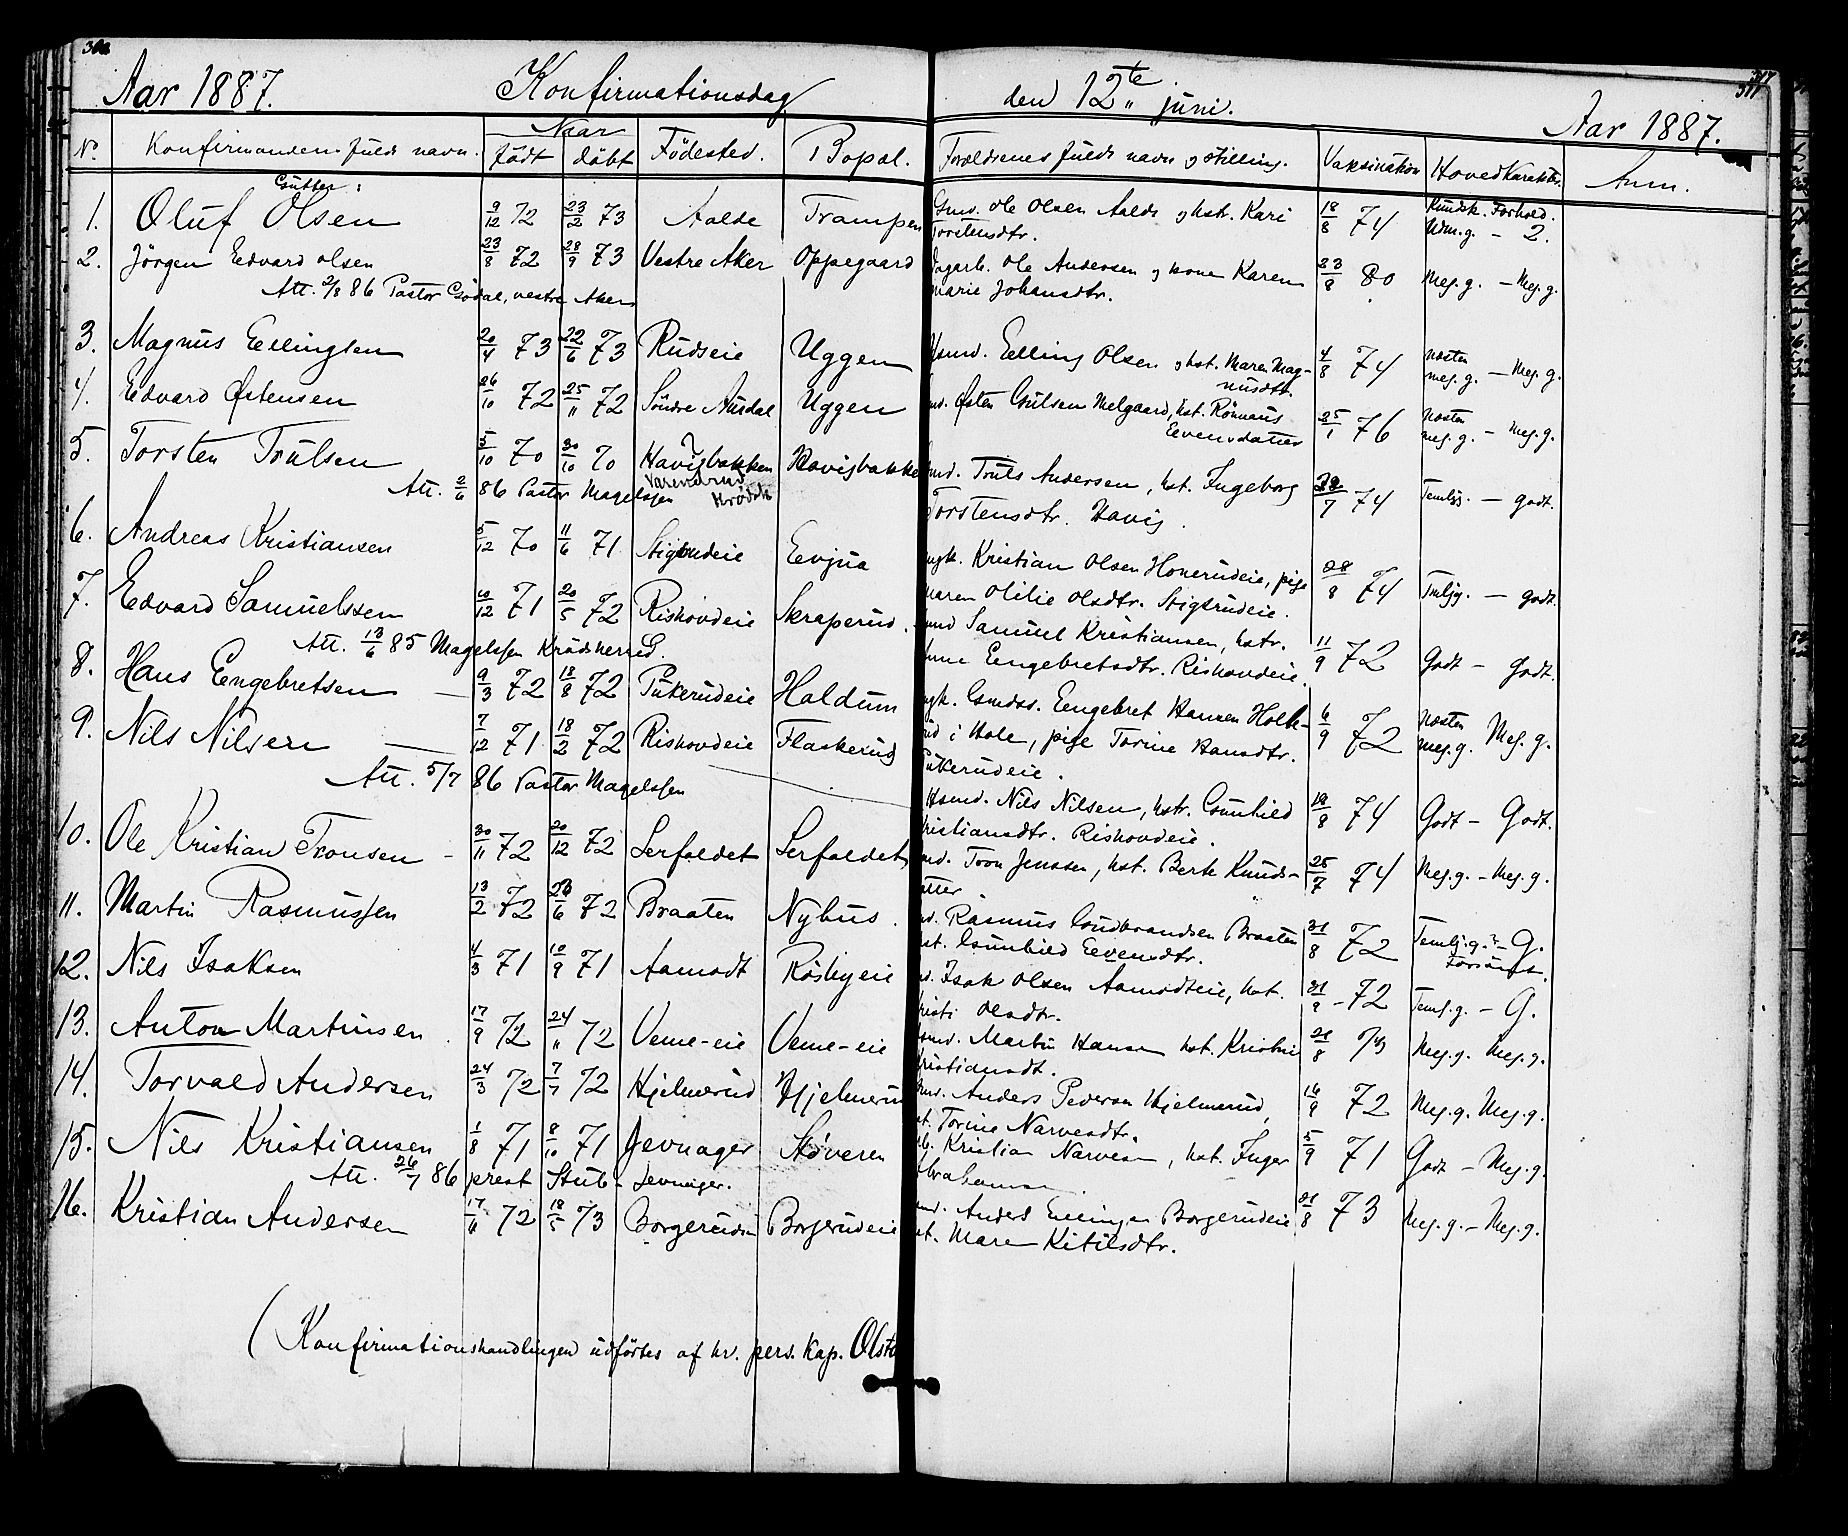 Aar 1887. Konfirmationsdag den 12te juni. Aar 1887.
No. Konfirmandens fulde navn. Naar födt döbt Födested. Bopæl. Forældrenes fulde navn og stilling. Vaksination Hovedkarakter. Anm.
Gutter:
1. Oluf Olsen 9/12 72 23/2 73 Aalde Trampen Ole Olsen Aalde og hstr. Kari 18/8 74 Kundsk. Forhold.
Torstensdtr. Udm.g. - 2.
2. Jörgen Edvard Olsen 23/8 72 28/9 73 Vestre Aker Oppegaard Dagarb. Ole Andersen og kone Karen 23/8 80 Meg. g. - Meg. g.
Att. 2/8 86 Pastor Gödal, vestre Aker marie Johansdtr.
3. Magnus Eellingsen 20/4 73 22/6 73 Rudseie Uggen Hsmd. Eelling Olsen og hst. Maren Mag- 4/8 74 næsten
nusdtr. meg. g. - Meg. g.
4. Edvard Østensen 26/10 72 25/11 72 Söndre Ausdal Uggen Østen Gulsen Melgaard, hst. Rönnaus 25/1 76 Næsten
Eevensdatter meg. g. - meg. g.
5. Torsten Trulsen 5/10 70 30/10 70 Havigbakken Havigbakke Truls Andersen, hst. Ingeborg 28/7 74 Temlig. - godt.
Att. 2/6 86 Pastor Magelssen Torstensdtr. Havig.
6. Andreas Kristiansen 5/12 70 11/6 71 Stigsrudeie Eevjua ungk. Kristian Olsen Honerudeie, pige 28/8 74 Temlig. - godt.
maren Otilie Olsdtr. Stigsrudeie.
7. Edvard Samuelssen 10/12 71 20/5 72 Rishovdeie Skraperud. Samuel Kristiansen, hstr. 11/9 72 Godt - Godt.
Att. 13/6 85 Magelssen Krödsherred. Anne Eengebretsdtr. Rishovdeie.
8. Hans Eengebretsen - 9/3 72 18/8 72 Pukerudeie Haldum ugk. Gmdss. Eengebret Hansen Holle- 6/9 72 Næsten
rud i Hole, pige Torine Hansdtr. meg. g. Meg. g.
Pukerudeie.
9. Nils Nilsen 7/12 71 18/2 72 Rishovdeie Flaskerud Hsmd. Nils Nilsen, hstr. Gunhild 19/8 74 Godt - Godt.
Att. 5/7 86 Pastor Magelssen Kristiansdtr. Rishovdeie.
10. Ole Kristian Tronsen - 30/11 72 20/12 72 Lerfaldet Lerfaldet Tron Jenssen, hst. Berte Knuds- 25/7 74 Meg. g. - Meg. g.
datter
11. Martin Rasmussen 13/2 72 23/6 72 Braaten Nyhus. Rasmus Gudbrandsen Braaten 31/8 72 Temlig. - G.
hst. Gunhild Eevensdtr. Forsömt.
12. Nils Isaksen 4/3 71 10/9 71 Aamodt Röshyeie Isak Olsen Aamodteie, hst. 31/9 - 72 Teml. g. - G.
Kristi Olsdtr.
13. Anton Martinsen 17/9 72 24/11 72 Veme-eie Veme-eie Hsmd. Martin Hansen hst. Kristine 21/8 73 Meg. g. Meg. g.
Kristiansdt.
14. Torvald Andersen 24/3 72 7/7 72 Hjelmerud Hjelmerud Anders Pedersen Hjelmerud, 16/9 72 Meg. g. Meg. g.
hst. Torine Narvesdtr.
15. Nils Kristiansen 1/8 71 8/10 71 Jevnager Stöveren Kristian Narvesen, hst. Inger 5/9 71 Godt - Meg. g.
Att. 26/7 86 prest Stub - Jevnager. Abrahamsen.
16. Kristian Andersen 17/6 72 18/5 73 Borgerudeie Borgerudeie Anders Eellingsen Borgerudeie 21/8 73 Meg. g. - Meg. g.
hst. Maren Kitilsdtr.
(Konfirmationshandlingen udförtes af hr. pers. Kap. Olsta